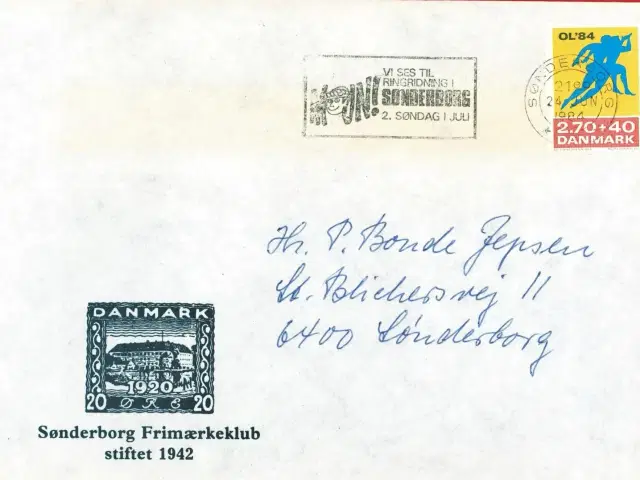 OL'84
VI SES TIL
RINGRIDNING I
MOJN! SØNDERBORG
2. SØNDAG I JULI
SØNDERBORG
24 JUN
1984
2.70+40
DANMARK
Hr. P. Bonde Jepsen
St. Blichersvej 11
6400 Sønderborg
DANMARK
1920
20 ØRE 20
Sønderborg Frimærkeklub
stiftet 1942